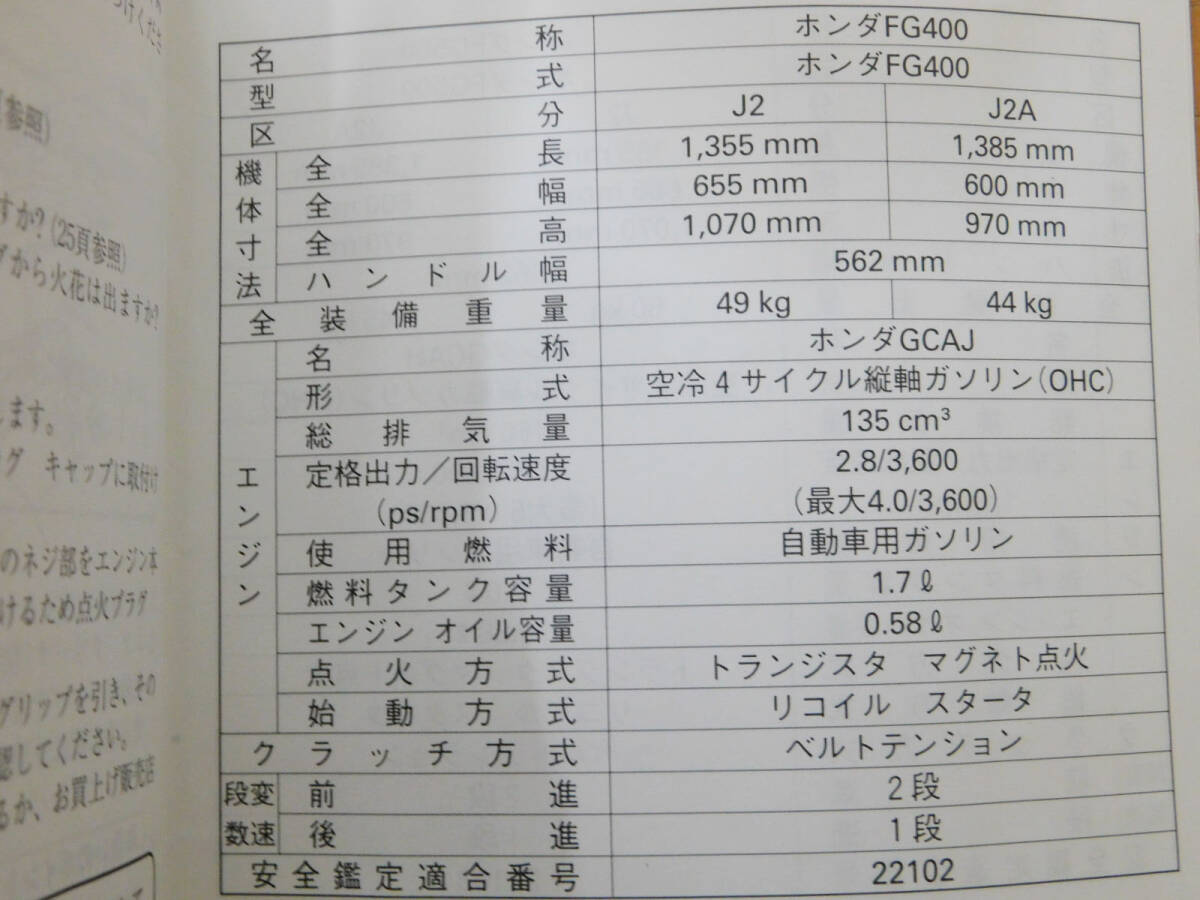 参照)
すか? (25頁参照)
グから火花は出ますか?
します。
グ キャップに取付け
のネジ部をエンジン本
けるため点火プラグ
グリップを引き、その
認してください。
るか、お買上げ販売店
名称 ホンダFG400
型式 ホンダFG400
区分 J2 J2A
機体寸法 全長 1,355 mm 1,385 mm
全幅 655 mm 600 mm
全高 1,070 mm 970 mm
ハンドル幅 562 mm
全装備重量 49 kg 44 kg
エンジン 名称 ホンダGCAJ
形式 空冷4サイクル縦軸ガソリン(OHC)
総排気量 135 cm³
定格出力/回転速度 2.8/3,600
(ps/rpm) (最大4.0/3,600)
使用燃料 自動車用ガソリン
燃料タンク容量 1.7ℓ
エンジン オイル容量 0.58ℓ
点火方式 トランジスタ マグネト点火
始動方式 リコイル スタータ
クラッチ方式 ベルトテンション
段変数速 前進 2段
後進 1段
安全鑑定適合番号 22102